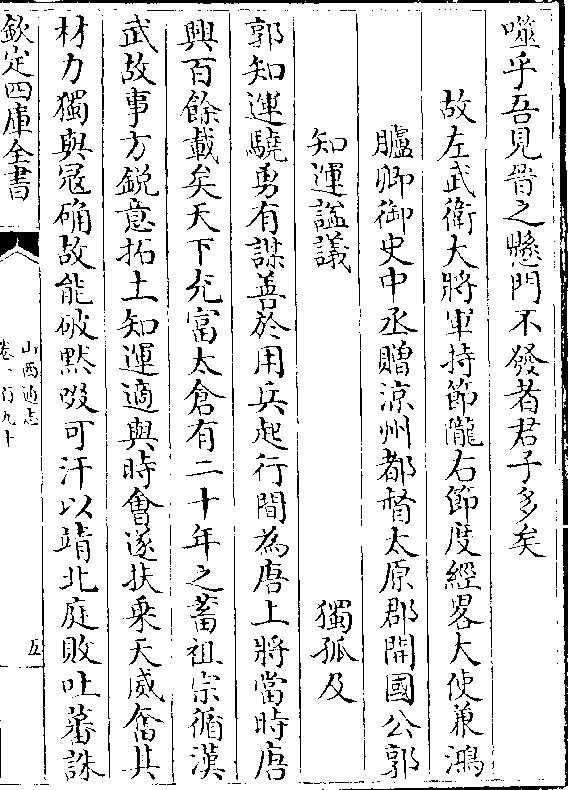 噬乎吾見晉之懸門不發者君子多矣
故左武衛大將軍持節隴右節度經畧大使兼鴻
臚卿御史中丞贈涼州都督太原郡開國公郭
知運謚議
獨孤及
郭知運驍勇有謀善於用兵起行間為唐上將當時唐
興百餘載矣天下充富太倉有二十年之蓄祖宗循漢
武故事方銳意拓土知運適與時會遂扶乗天威奮其
材力獨與冦确故能破黙啜可汗以靖北庭敗吐蕃誅
欽定四庫全書
山西通志
卷一百九十
五